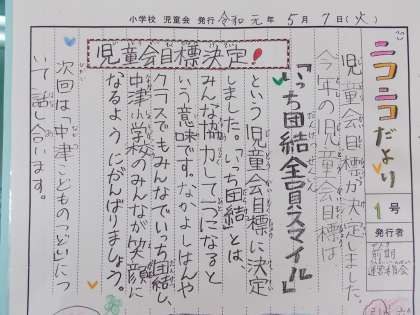 小学校 児童会 発行 令和元年5月7日(火)
ニコニコだより
1号
発行者
前期
運営委員会
児童会目標決定!
児童会目標が決定しました。
今年の児童会目標は
「いっち団結全員スマイル」
という児童会目標に決定
しました。「いっち団結」とは、
みんな協力して一つになると
いう意味です。なかよしはんや
クラスでもみんなでいっち団結し、
中津小学校のみんなが笑顔に
なるようにがんばりましょう。
次回は「中津こどものつどい」につ
いて話し合います。